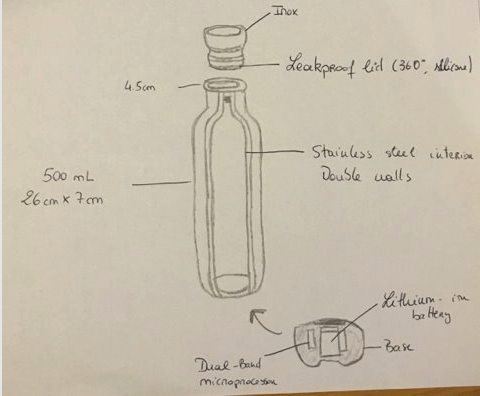 Inox
Leakproof lid (360°, silicone)
4.5cm
Stainless steel interior
Double walls
500 mL
26cm x 7cm
Lithium-ion
battery
Base
Dual-Band
microprocessor